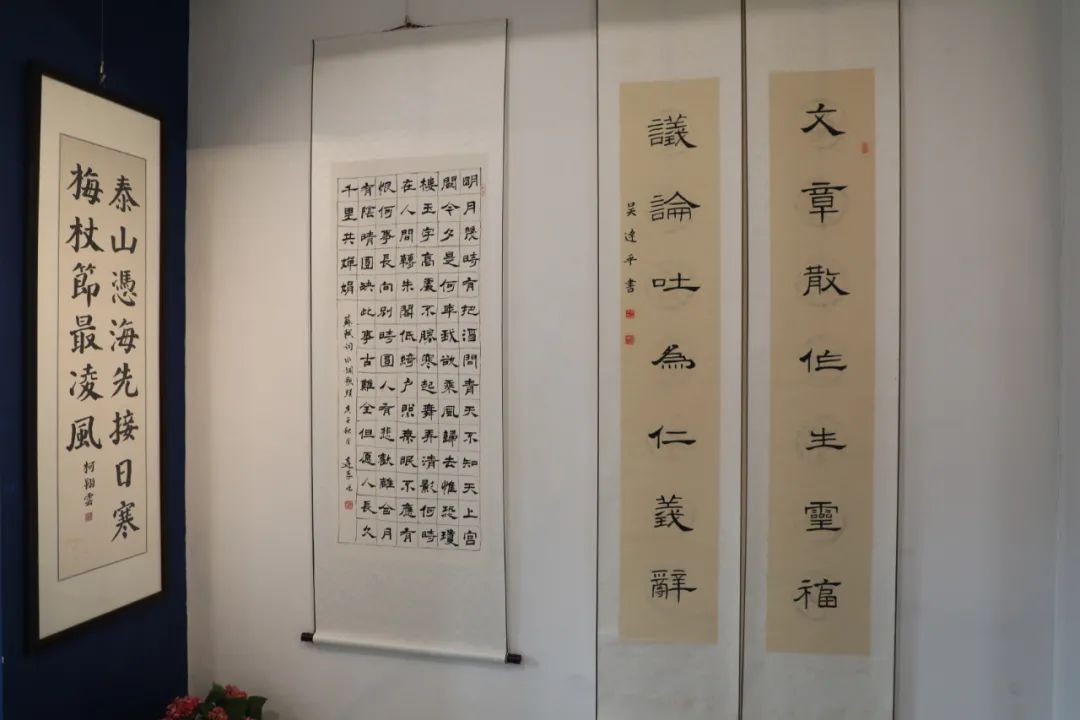 泰山憑海先接日寒
梅杖節最凌風
柯翔雲
明月幾時有把酒問青天不知天上宮
闕今夕是何年我欲乘風歸去惟恐瓊
樓玉宇高處不勝寒起舞弄清影何時
在人間轉朱閣低綺户照無眠不應有
恨何事長向別時圓人有悲歡離合月
有陰晴圓缺此事古難全但愿人長久
千里共嬋娟
蘇軾词水調歌頭
文章散作生靈福
議論吐為仁義辭
吴達平書